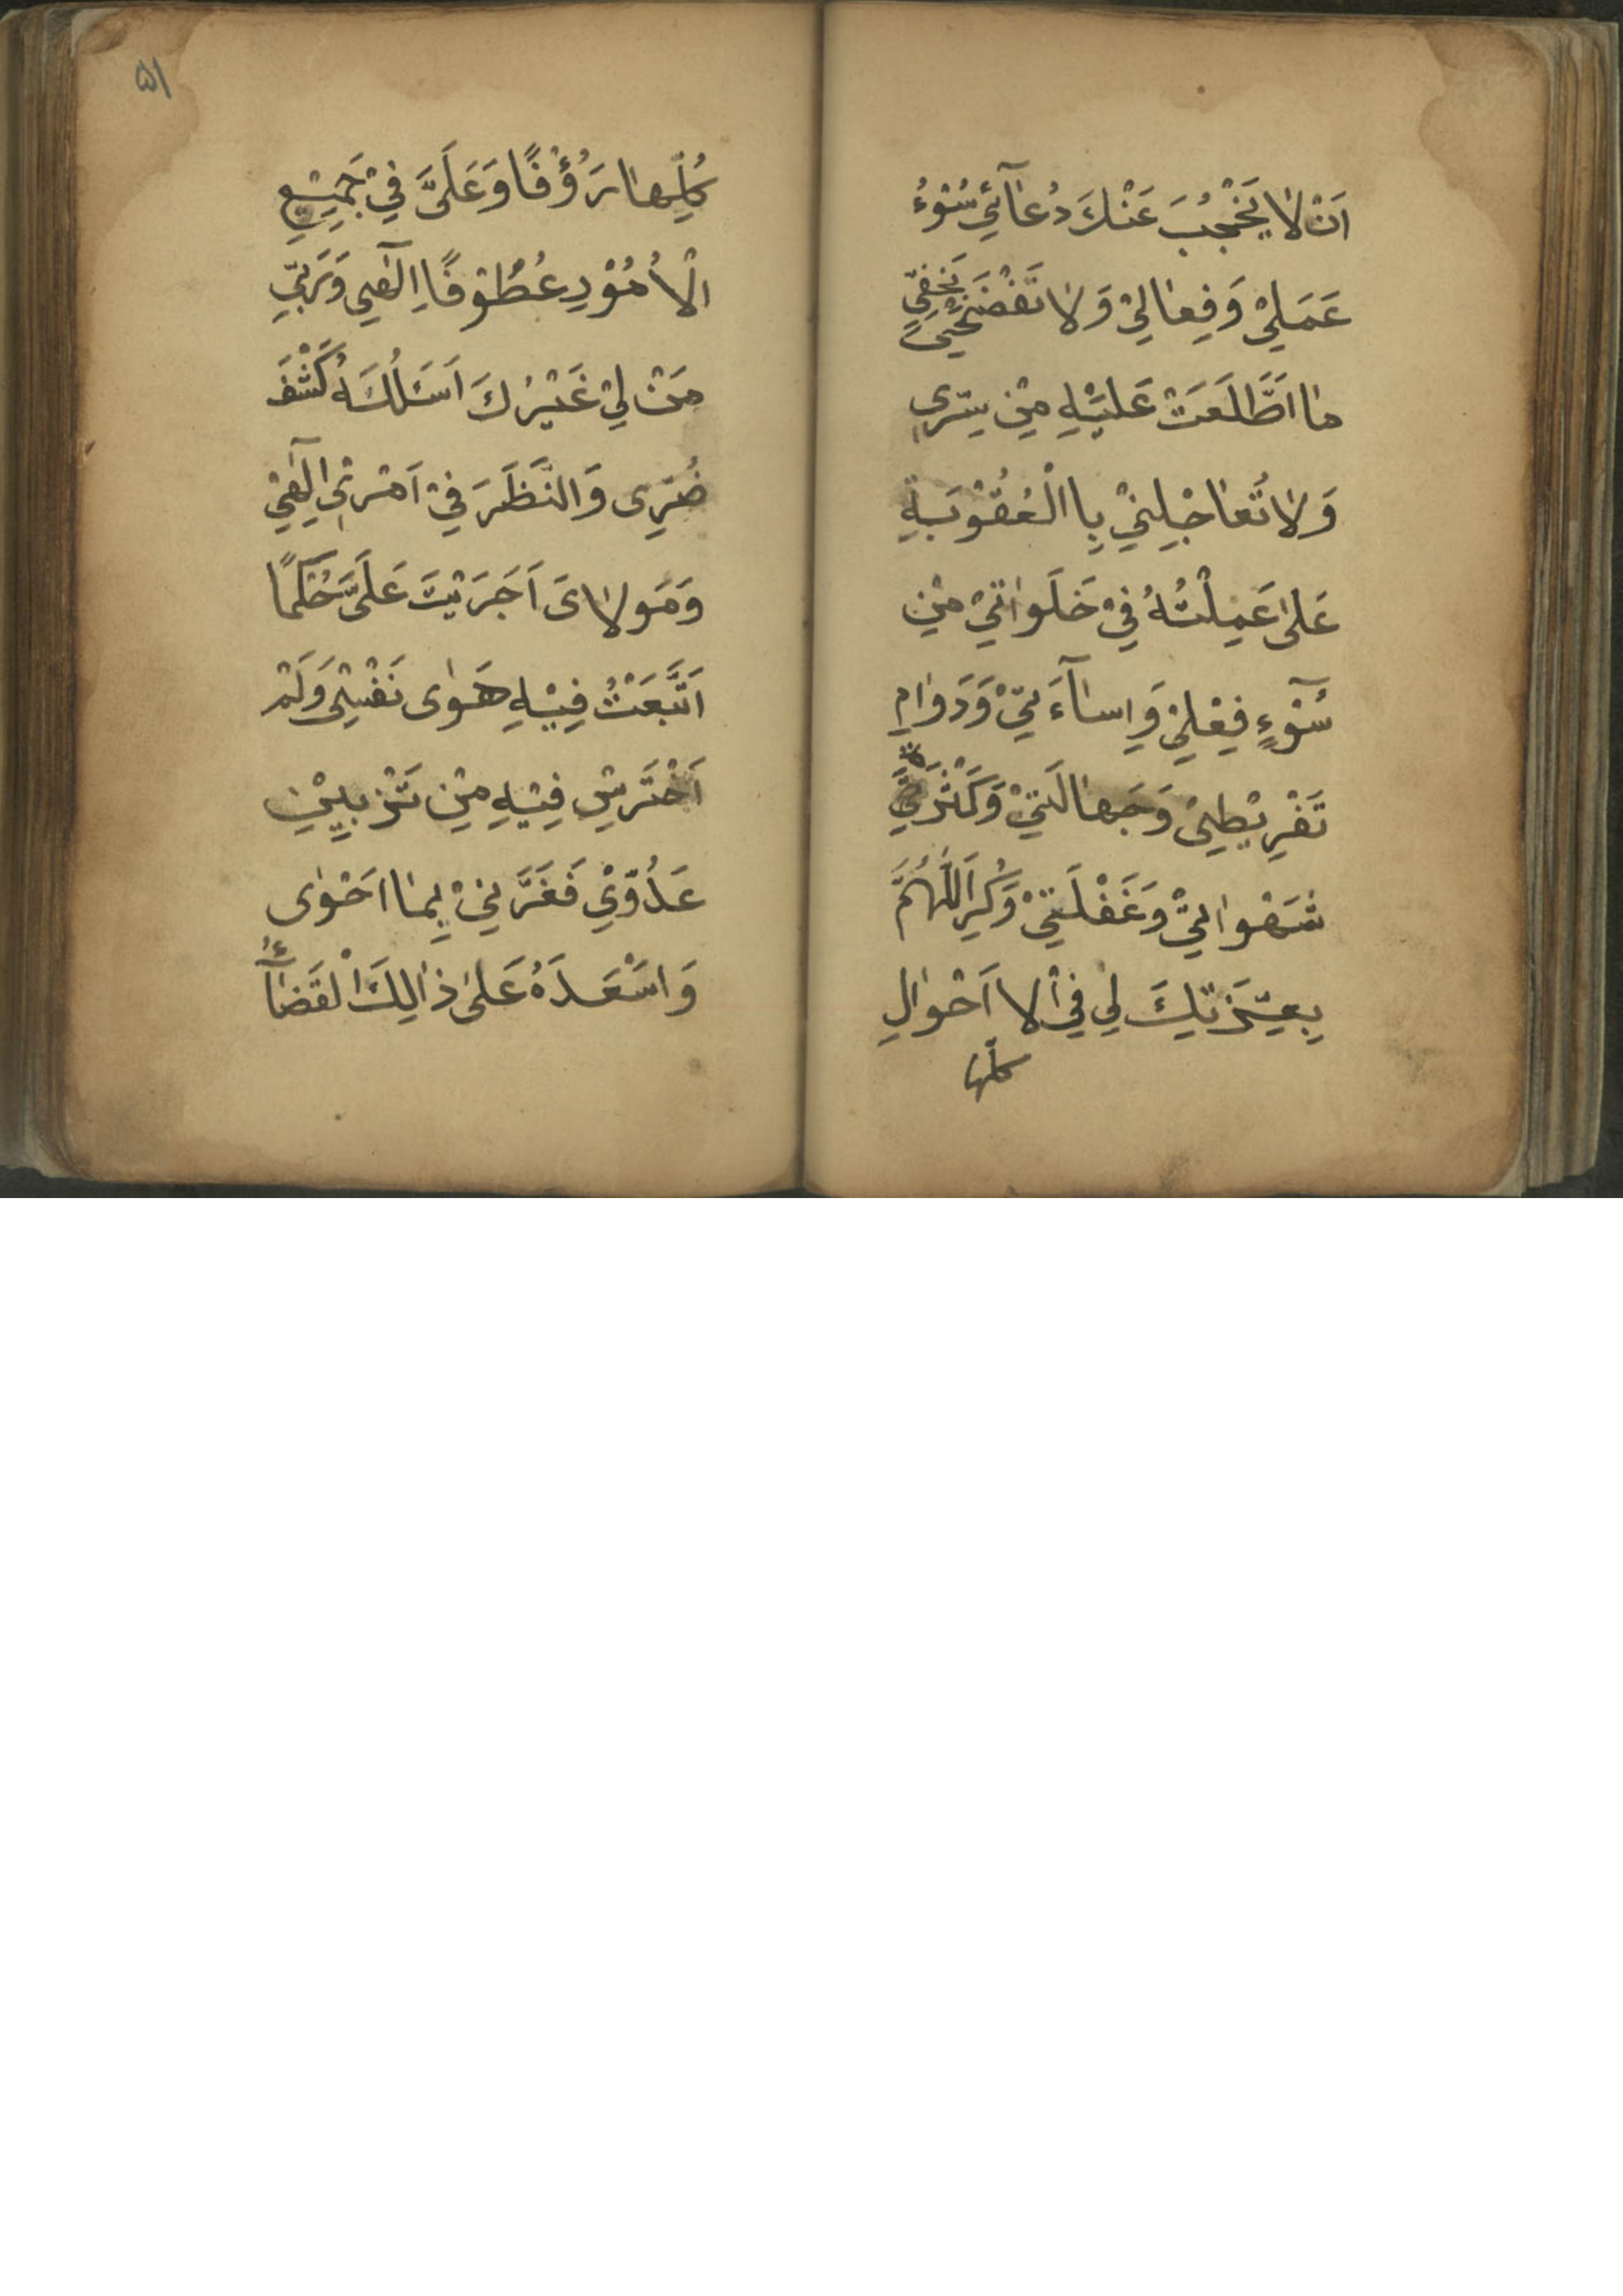 اَنْ لٰا يَحْجُبَ عَنْكَ دُعٰآئِي سُوْءُ
عَمَلِيْ وَفِعٰالِيْ وَلٰا تَفْضَحْنِيْ بِخَفِيِّ
مٰا اَطَّلَعَتْ عَلَيْهِ مِنْ سِرِّي
وَلٰا تُعٰاجِلْنِيْ بِا الْعُقُوْبَةِ
عَلٰى عَمِلْتُهُ فِيْ خَلَوٰاتِيْ مِنْ
سُوْٓءٍ فِعْلِيْ وَاِسٰآءَتِيْ وَدَوٰامِ
تَفْرِيْطِيْ وَجَهٰالَتِيْ وَكَثْرَةِ
شَهَوٰاتِيْ وَغَفْلَتِيْ وَكُنِ اَللّٰهُمَّ
بِعِزَّتِكَ لِي فِيْ الٰا اَحْوٰالِ
كلّها
۵۱
كُلِّهٰا رَؤُفًا وَعَلَىَّ فِيْ جَمِيْعِ
الْاُمُوْرِ عُطُوْفًا اِلٰٓهِي وَرَبِّي
مَنْ لِيْ غَيْرُكَ اَسْئَلُهُ كَشْفَ
ضُرِّى وَالنَّظَرَ فِيْ اَمْرِيْ اِلٰٓهِيْ
وَمَوْلٰاىَ اَجَرَيْتَ عَلَىَّ حُكْمًا
اَتَّبَعْتُ فِيْهِ هَوٰى نَفْسِيْ وَلَمْ
اَحْتَرِسْ فِيْهِ مِنْ تَزْيِيْنِ
عَدُوِّيْ فَغَرَّنِيْ بِمٰا اَحْوٰى
وَاسْعَدَهُ عَلٰى ذٰالِكَ الْقَضٰٓاءُ